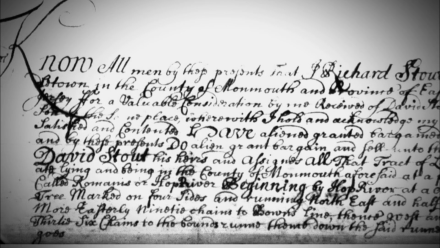 Know All men by these presents that I Richard Stou
Town in the County of Monmouth and Province of Ea
Jersey for a Valuable Consideration by me Received of David
wherewith I hold and acknowledge my
Satisfied and Contented HAVE aliened granted bargained
and by these presents DO alien grant bargain and sell unto th
David Stout his heirs and Assignes All That Tract of
Lying and being in the County of Monmouth aforesaid at a
Called Romanis or Hop River Beginning by Hop River at a
Tree Marked on four Sides and running North East and half
More Easterly Ninetie chains to Bound Line, thence west an
Thirtie Six Chains to the bound runne thence down the said runne
goes